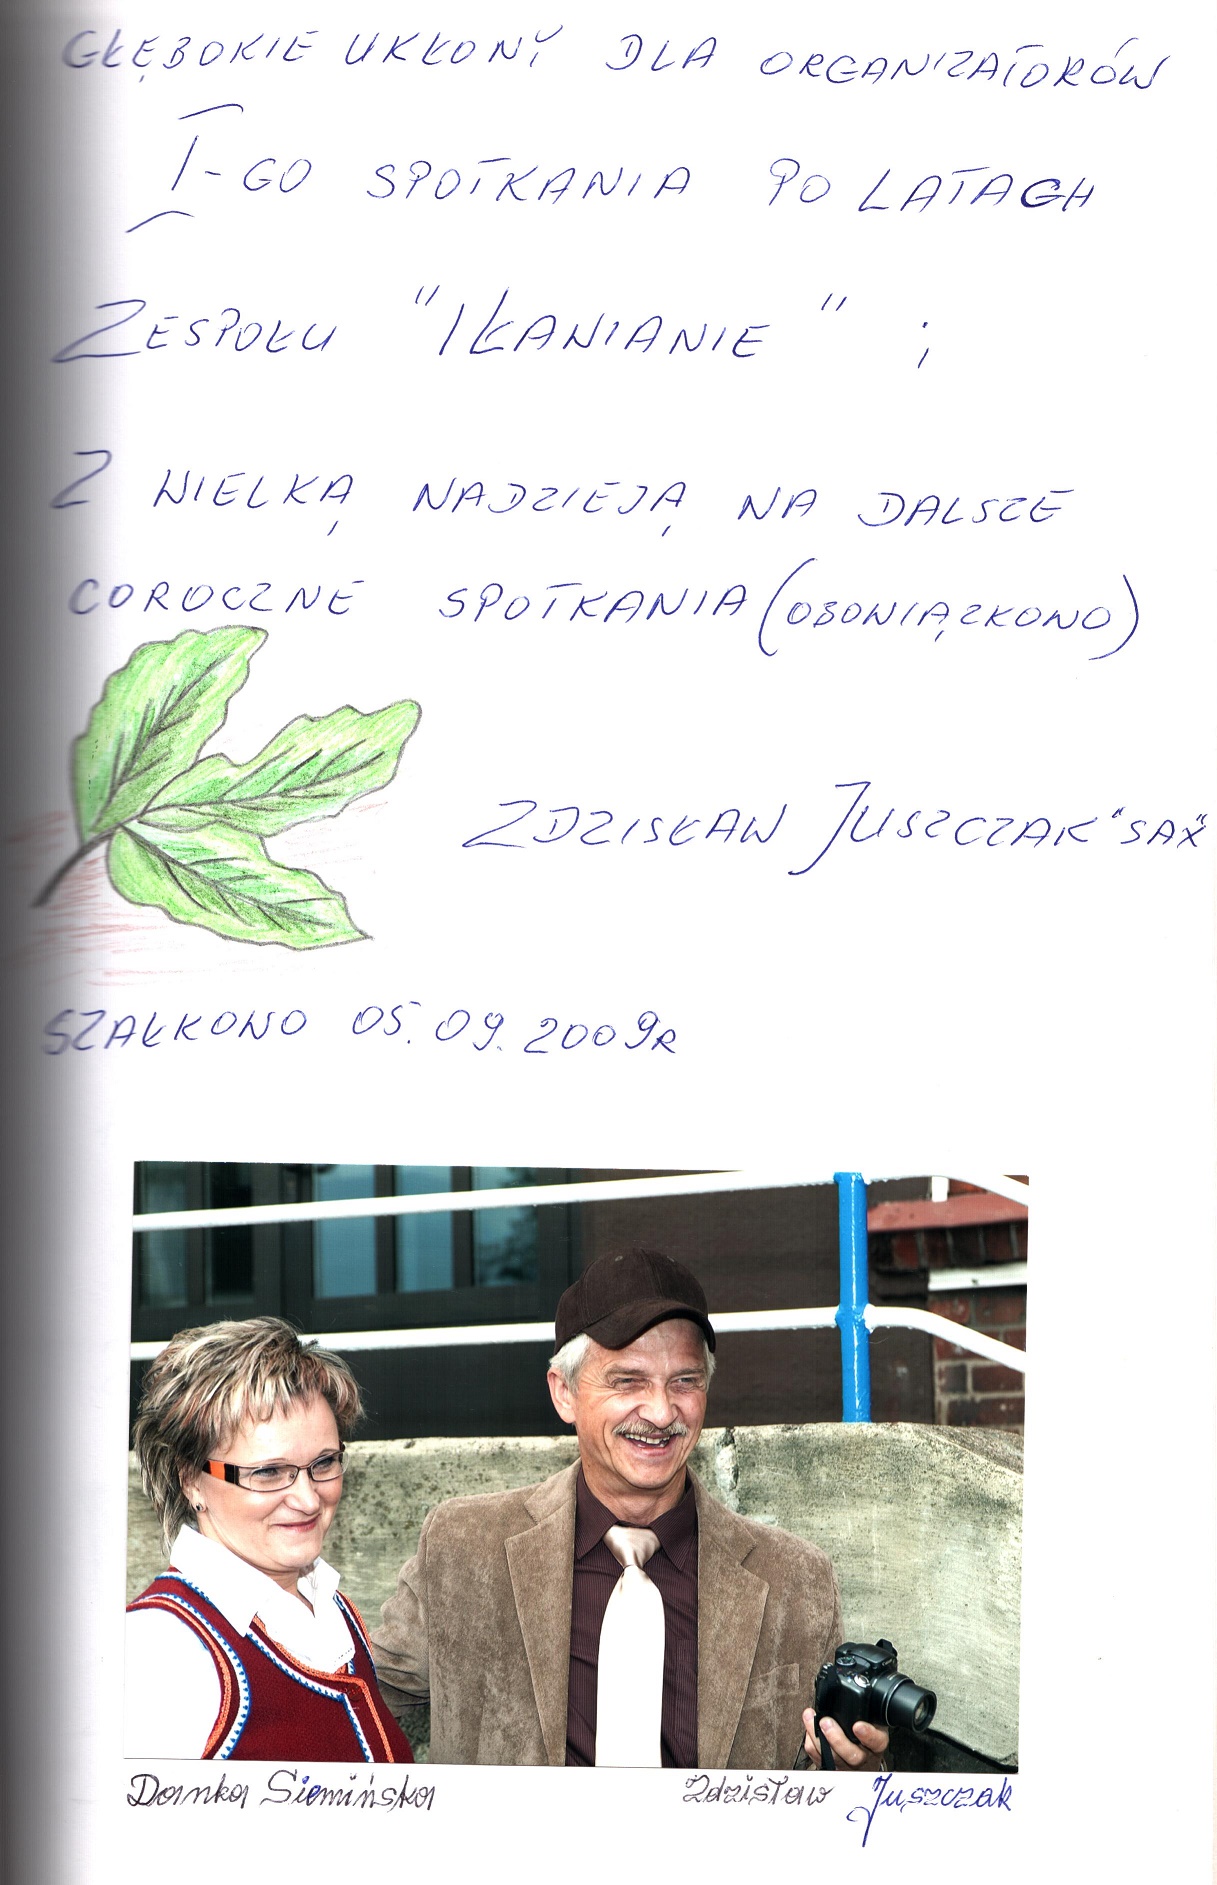 GŁĘBOKIE UKŁONY DLA ORGANIZATORÓW
I-GO SPOTKANIA PO LATACH
ZESPOŁU "IŁAWIANIE" i
Z WIELKĄ NADZIEJĄ NA DALSZE
COROCZNE SPOTKANIA (OBOWIĄZKOWO)
ZDZISŁAW JUSZCZAK "SAX"
SZAŁKOWO 05.09.2009R
Danka Siemińska
Zdzisław Juszczak